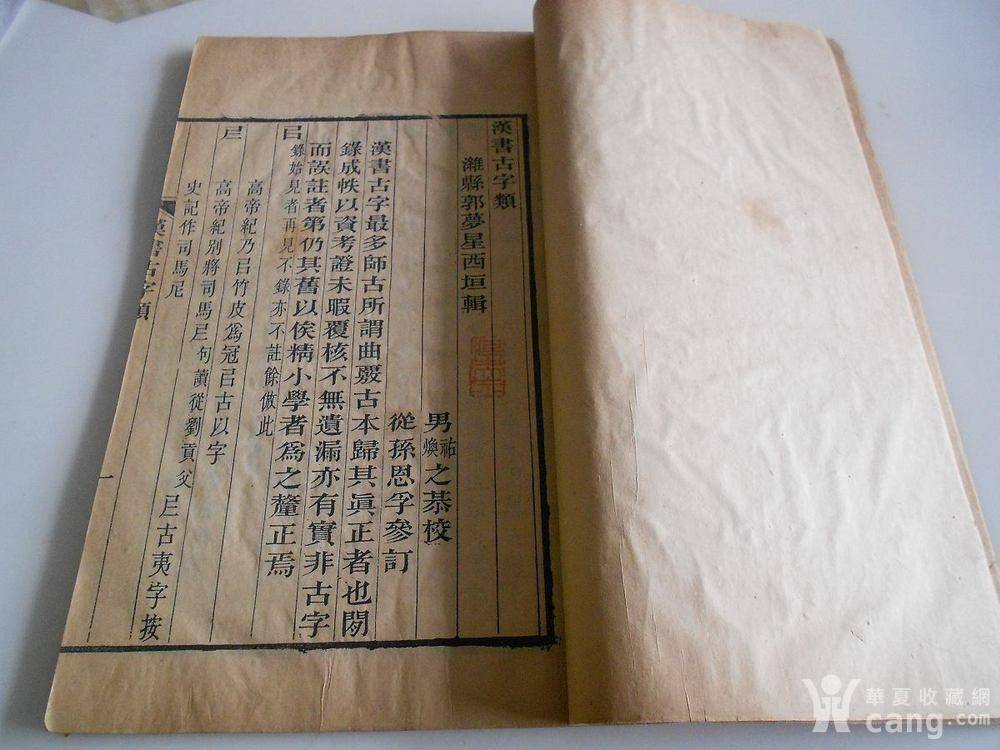 漢書古字類
濰縣郭夢星西垣輯
男祐煥之恭校
從孫恩孚參訂
漢書古字最多師古所謂曲覈古本歸其眞正者也閒
錄成帙以資考證未暇覆核不無遺漏亦有實非古字
而誤註者第仍其舊以俟精小學者爲之釐正焉
㠯錄始見者再見不錄亦不註餘倣此
高帝紀乃㠯竹皮爲冠㠯古以字
𡰥
高帝紀別將司馬𡰥句讀從劉貢父𡰥古夷字按
史記作司馬𡰥
漢書古字類
一
華夏收藏網
cang.com